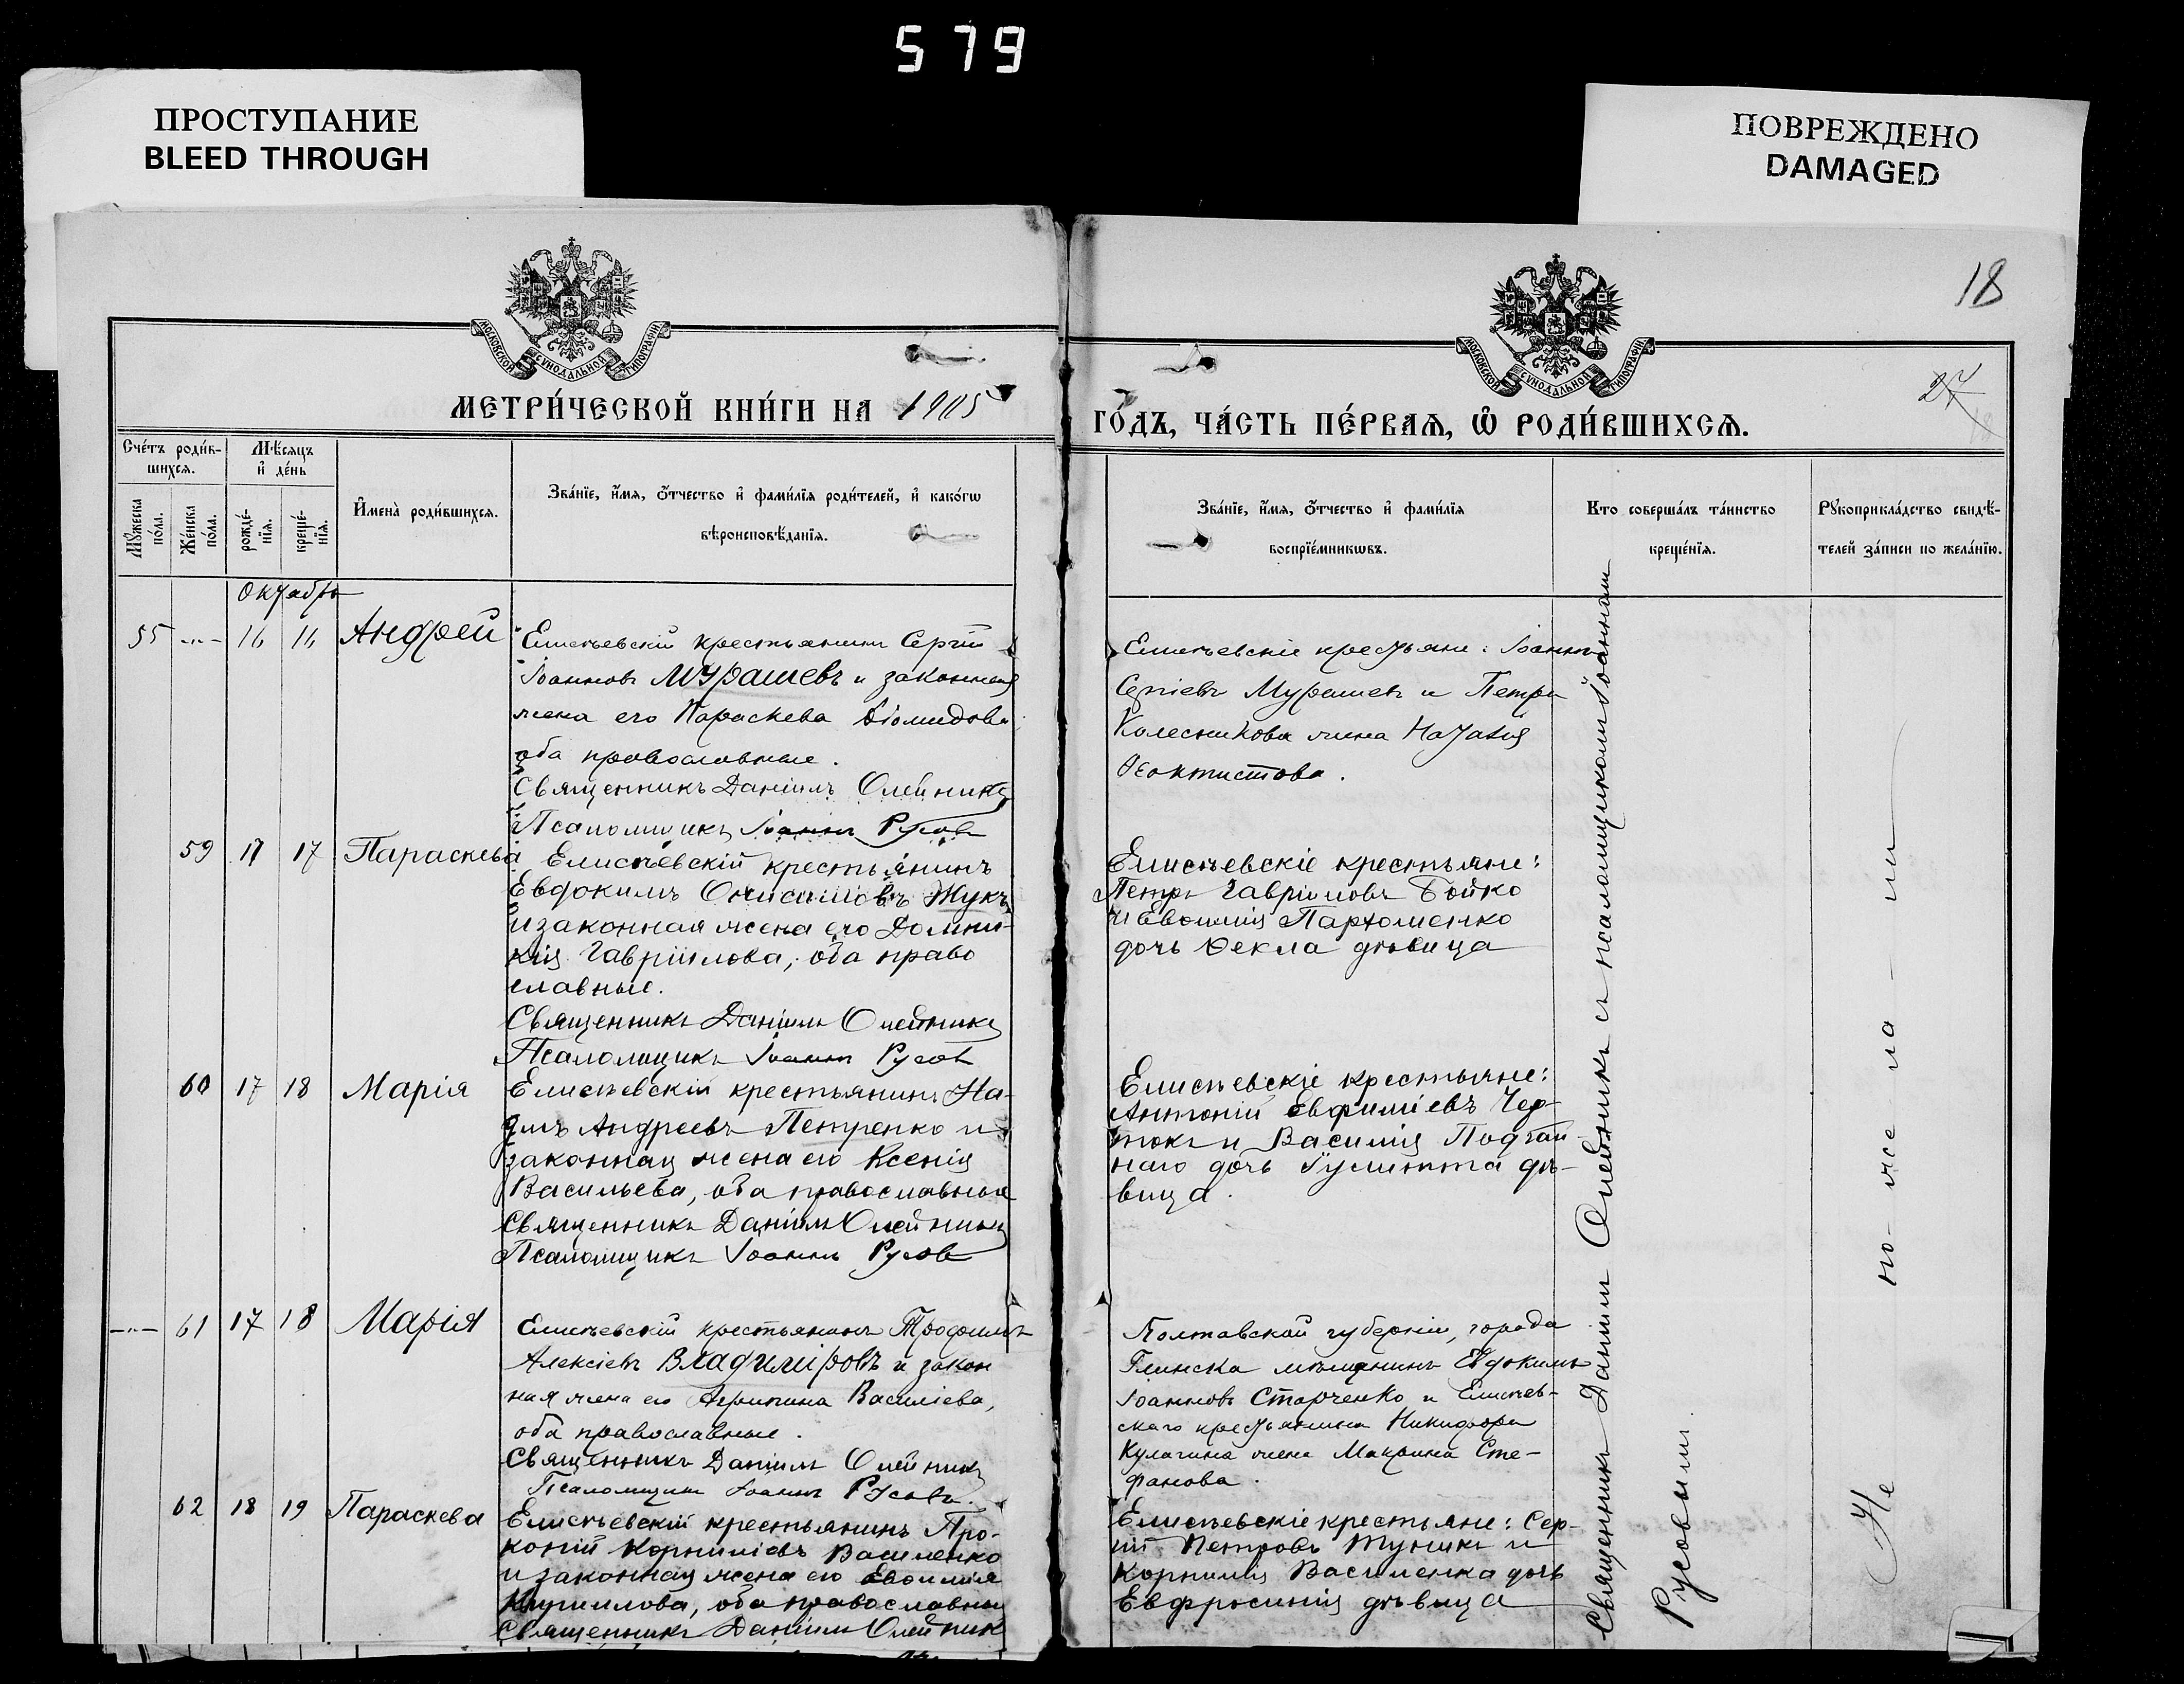 579
ПРОСТУПАНИЕ
BLEED THROUGH
ПОВРЕЖДЕНО
DAMAGED
18
27
МОСКОВСКОЙ СѴНОДАЛЬНОЙ ТИПОГРАФІИ
МОСКОВСКОЙ СѴНОДАЛЬНОЙ ТИПОГРАФІИ
МЕТРИ́ЧЕСКОЙ КНИ́ГИ НА 1905
ГО́ДЪ, ЧА́СТЬ ПЕ́РВАѦ, Ѡ РОДИ́ВШИХСѦ.
Сче́тъ роди́в-
шихсѧ.
Мѣ́сѧцъ
и҆ де́нь
Мꙋ́жеска
по́ла.
Же́нска
по́ла.
рожде́-
нїѧ.
креще́-
нїѧ.
И҆мена̀ роди́вшихсѧ.
Зва́нїе, и҆́мѧ, ѻ҆́тчество и҆ фами́лїѧ роди́телей, и҆ како́гѡ
вѣроисповѣ́данїѧ.
Зва́нїе, и҆́мѧ, ѻ҆́тчество и҆ фами́лїѧ
воспрїе́мникѡвъ.
Кто соверша́лъ та́инство
креще́нїѧ.
Рꙋкоприкла́дство свидѣ́-
телей за́писи по жела́нїю.
Октябрь
55 -"- 16 16 Андрей
Елисѣевскій крестьянинъ Сергій
Іоанновъ Мурашевъ и законная
жена его Параскева Діомидова
оба православные.
Священникъ Даніилъ Олейникъ
Псаломщикъ Іоаннъ Русовъ
Елисѣевскіе крестьяне: Іоаннъ
Сергіевъ Мурашевъ и Петра
Колесникова жена Наталія
Ѳеоктистова.
59 17 17 Параскева
Елисѣевскій крестьянинъ
Евдокимъ Онисимовъ Жукъ
и законная жена его Домни-
кія Гавріилова, оба право
славные.
Священникъ Даніилъ Олейникъ
Псаломщикъ Іоаннъ Русовъ
Елисѣевскіе крестьяне:
Петръ Гавріиловъ Бойко
и Евѳимія Пархоменко
дочь Ѳекла дѣвица
60 17 18 Марія
Елисѣевскій крестьянинъ На-
умъ Андреевъ Петренко и
законная жена его Ксенія
Васильева, оба православные
Священникъ Даніилъ Олейникъ
Псаломщикъ Іоаннъ Русовъ
Елисѣевскіе крестьяне:
Антоній Евфиміевъ Чер-
токъ и Василія
дочь дѣ-
вица.
-"- 61 17 18 Марія
Елисѣевскій крестьянинъ Трофимъ
Алексіевъ Владиміровъ и закон
ная жена его Агрипина Василіева,
оба православные.
Священникъ Даніилъ Олейникъ
Псаломщикъ Іоаннъ Русовъ.
Полтавской губерніи, города
Глинска мѣщанинъ Евдокимъ
Іоанновъ Старченко и Елисѣев-
скаго крестьянина Никифора
Кулагина жена Макрина Сте-
фанова.
62 18 19 Параскева
Елисѣевскій крестьянинъ Про-
копій Корниліевъ Василенко
и законная жена его Евѳимія
Кириллова, оба православные
Священникъ Даніилъ Олейник
Елисѣевскіе крестьяне: Сер-
гій Петровъ и
Корнилія Василенка дочь
Евфросинія дѣвица
Священникъ Даніилъ Олейникъ съ псаломщикомъ Іоанномъ
Русовымъ.
Не по-же ла-ли